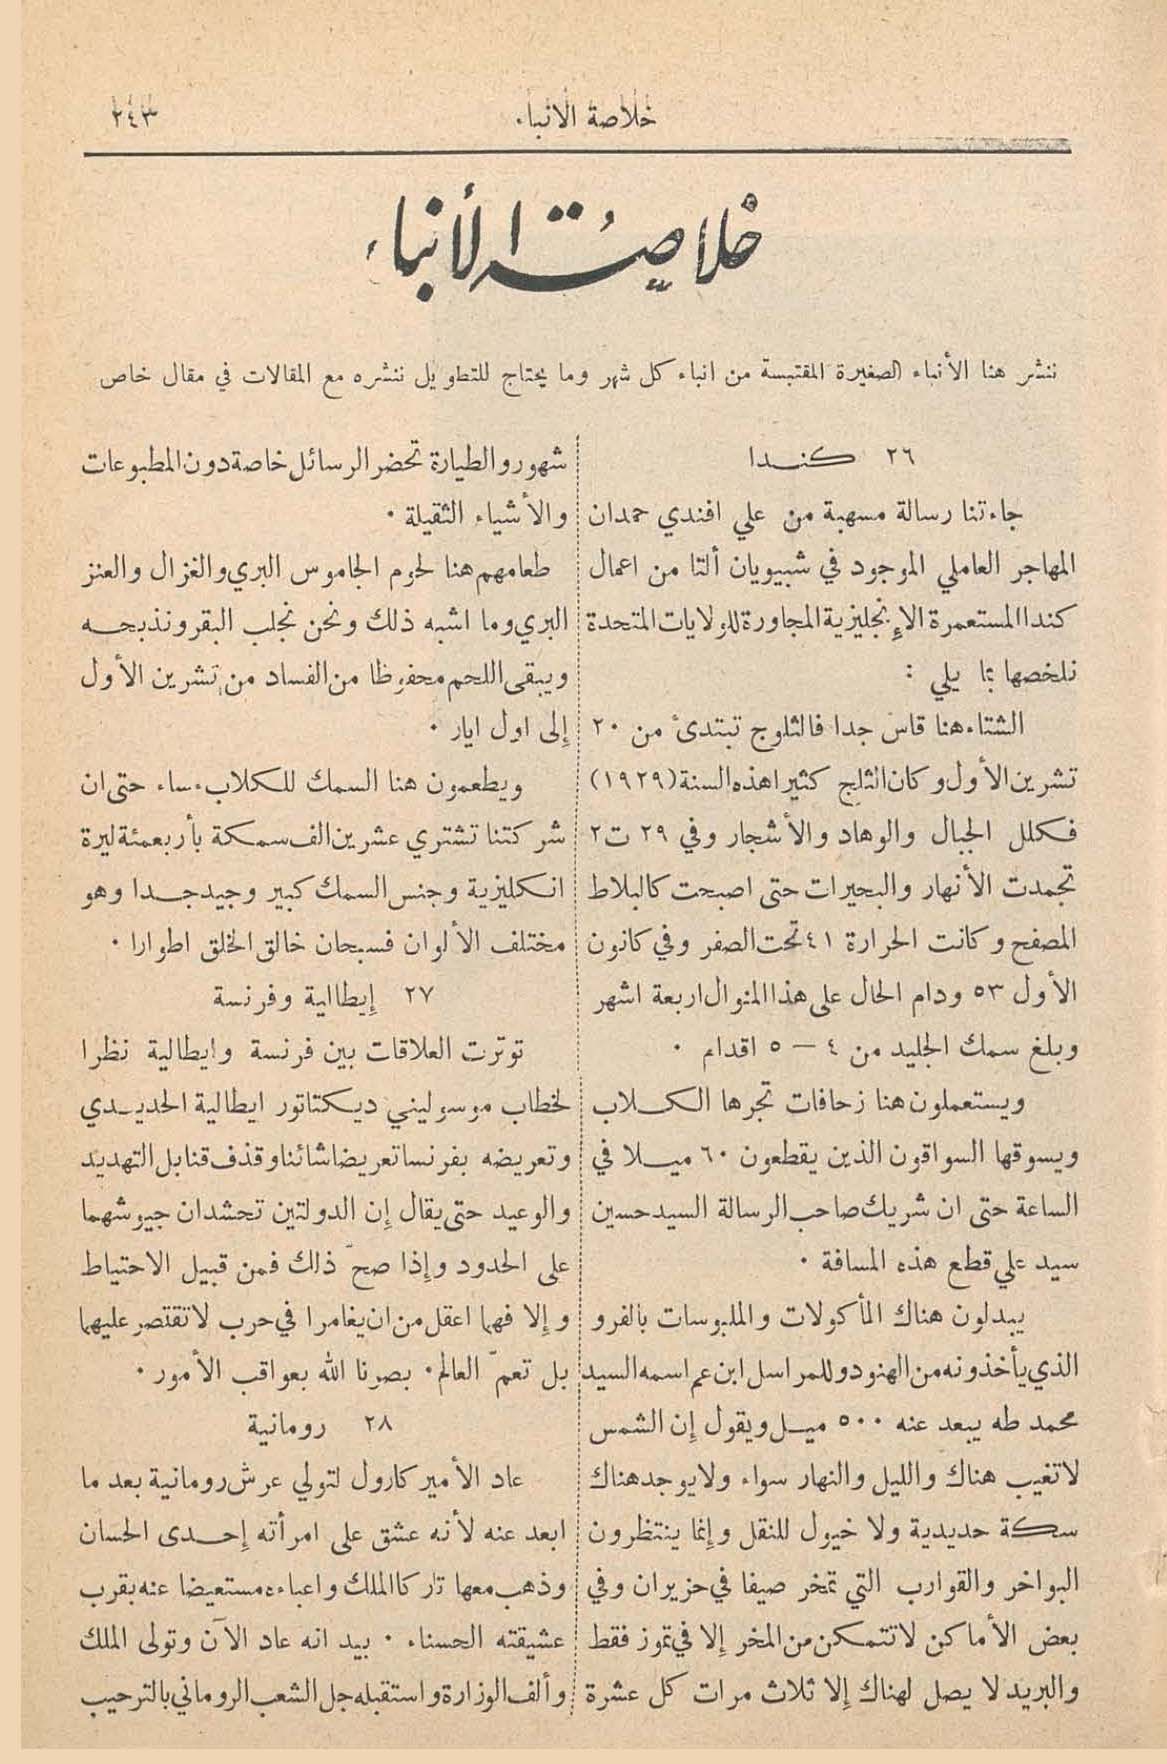 خلاصة الانباء
٢٤٣
خلاصة الأنباء
ننشر هنا الأنباء الصغيرة المقتبسة من انباء كل شهر وما يحتاج للتطويل ننشره مع المقالات في مقال خاص
٢٦ كندا
جاءتنا رسالة مسهبة من علي افندي حمدان
المهاجر العاملي الموجود في شبيويان ألتا من اعمال
كندا المستعمرة الإنجليزية المجاورة للولايات المتحدة
نلخصها بما يلي :
الشتاء هنا قاس جدا فالثلوج تبتدئ من ٢٠
تشرين الأول وكان الثلج كثيرا هذه السنة (١٩٢٩)
فكلل الجبال والوهاد والأشجار وفي ٢٩ ت٢
تجمدت الأنهار والبحيرات حتى اصبحت كالبلاط
المصفح وكانت الحرارة ٤١ تحت الصفر وفي كانون
الأول ٥٣ ودام الحال على هذا المنوال اربعة اشهر
وبلغ سمك الجليد من ٤ — ٥ اقدام ٠
ويستعملون هنا زحافات تجرها الكلاب
ويسوقها السواقون الذين يقطعون ٦٠ ميلا في
الساعة حتى ان شريك صاحب الرسالة السيد حسين
سيد علي قطع هذه المسافة ٠
يبدلون هناك المأكولات والملبوسات بالفرو
الذي يأخذونه من الهنود وللمراسل ابن عم اسمه السيد
محمد طه يبعد عنه ٥٠٠ ميل ويقول إن الشمس
لا تغيب هناك والليل والنهار سواء ولا يوجد هناك
سكة حديدية ولا خيول للنقل وإنما ينتظرون
البواخر والقوارب التي تمخر صيفا في حزيران وفي
بعض الأماكن لا تتمكن من المخر إلا في تموز فقط
والبريد لا يصل لهناك إلا ثلاث مرات كل عشرة
شهور والطيارة تحضر الرسائل خاصة دون المطبوعات
والأشياء الثقيلة ٠
طعامهم هنا لحوم الجاموس البري والغزال والعنز
البري وما اشبه ذلك ونحن نجلب البقر ونذبحه
ويبقى اللحم محفوظا من الفساد من تشرين الأول
إلى اول ايار ٠
ويطعمون هنا السمك للكلاب مساء حتى ان
شركتنا تشتري عشرين الف سمكة بأربعمئة ليرة
انكليزية وجنس السمك كبير وجيد جدا وهو
مختلف الألوان فسبحان خالق الخلق اطوارا ٠
٢٧ إيطالية وفرنسة
توترت العلاقات بين فرنسة وايطالية نظرا
لخطاب موسوليني ديكتاتور ايطالية الحديدي
وتعريضه بفرنسا تعريضا شائنا وقذف قنابل التهديد
والوعيد حتى يقال إن الدولتين تحشدان جيوشهما
على الحدود وإذا صحّ ذلك فمن قبيل الاحتياط
وإلا فهما اعقل من ان يغامرا في حرب لا تقتصر عليهما
بل تعمّ العالم ٠ بصرنا الله بعواقب الأمور ٠
٢٨ رومانية
عاد الأمير كارول لتولي عرش رومانية بعد ما
ابعد عنه لأنه عشق على امرأته إحدى الحسان
وذهب معها تاركا الملك واعباءه مستعيضا عنه بقرب
عشيقته الحسناء ٠ بيد انه عاد الآن وتولى الملك
وألف الوزارة واستقبله جل الشعب الروماني بالترحيب